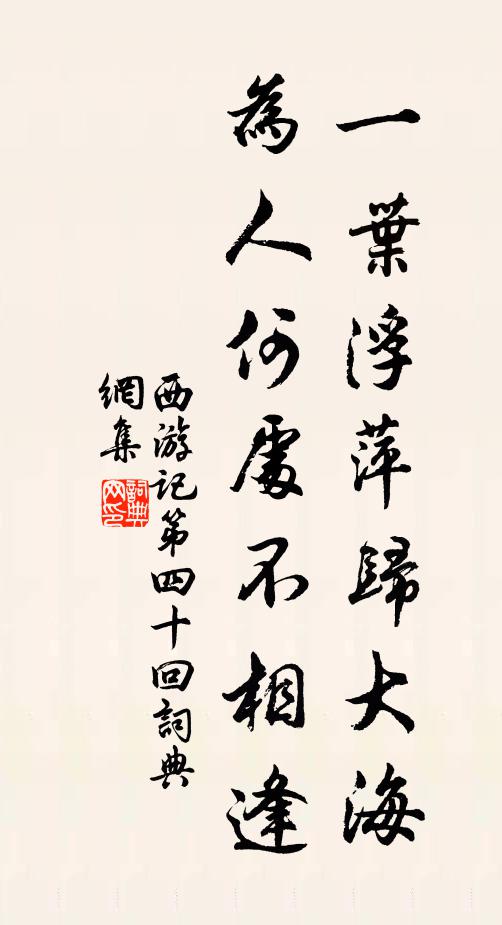 一葉浮萍歸大海
為人何處不相逢
西游記第四十回詞典
網集
詞典網印